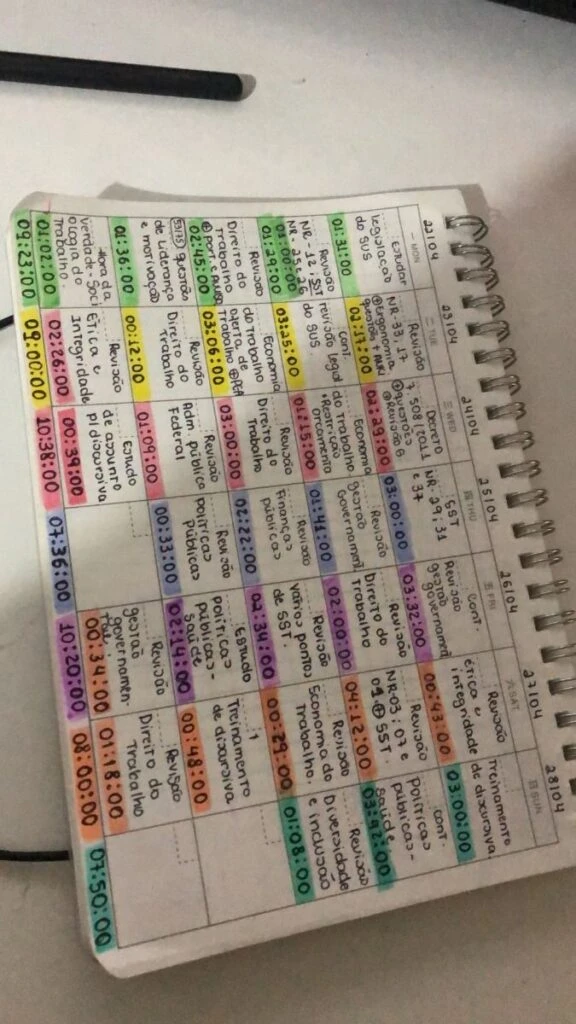 22/04
一 MON
Estudar
legislação
do SUS
01:31:00
Revisão
NR-12; SST
NR-25 e 26
01:00:00
01:29:00
Revisão
Direito do
Trabalho
02:45:00
questões
de Liderança
e motivação
01:36:00
Hora da
verdade-Soci
ologia do
Trabalho.
01:02:00
09:23:00
23/04
二 TUE
Revisão
NR-33, 17
⊕Ergonomia
03:17:00
cont.
revisão legis
do SUS
03:25:00
Economia
do Trabalho
Oferta de
Trabalho
03:06:00
Revisão
Direito do
Trabalho
00:12:00
Revisão
Ética e
Integridade
02:26:00
09:00:00
24/04
三 WED
Decreto
7.508/2011
⊕questões
⊕Revisão G
02:29:00
Economia
do Trabalho
•Restrição
orçamento
01:15:00
Revisão
Direito do
Trabalho
03:00:00
Revisão
Adm pública
Federal
01:09:00
Estudo
de assunto
p/ discursiva
00:39:00
10:38:00
25/04
四 THU
SST
NR-29; 31
e 37
03:00:00
Revisão
gestão
Governament
01:41:00
Revisão
Finanças
públicas
02:22:00
Revisão
políticas
públicas
00:33:00
07:36:00
26/04
五 FRI
cont.
Revisão
gestão
governament
03:32:00
Revisão
Direito do
Trabalho
02:00:00
Revisão
vários pontos
de SST.
02:34:00
Estudo
políticas
públicas-
saúde
02:14:00
10:20:00
27/04
六 SAT
Revisão
ética e
integridade
00:43:00
Revisão
NR-05; 07 e
09 ⊕ SST.
04:12:00
Revisão
Economia do
Trabalho.
00:29:00
Treinamento
de discursiva
00:48:00
Revisão
gestão
governamen-
00:34:00
Revisão
Direito do
Trabalho
01:18:00
08:00:00
28/04
日 SUN
Treinamento
de discursiva.
03:00:00
cont.
políticas
públicas-
saúde
03:42:00
Revisão
Diversidade
e inclusão
01:08:00
07:50:00